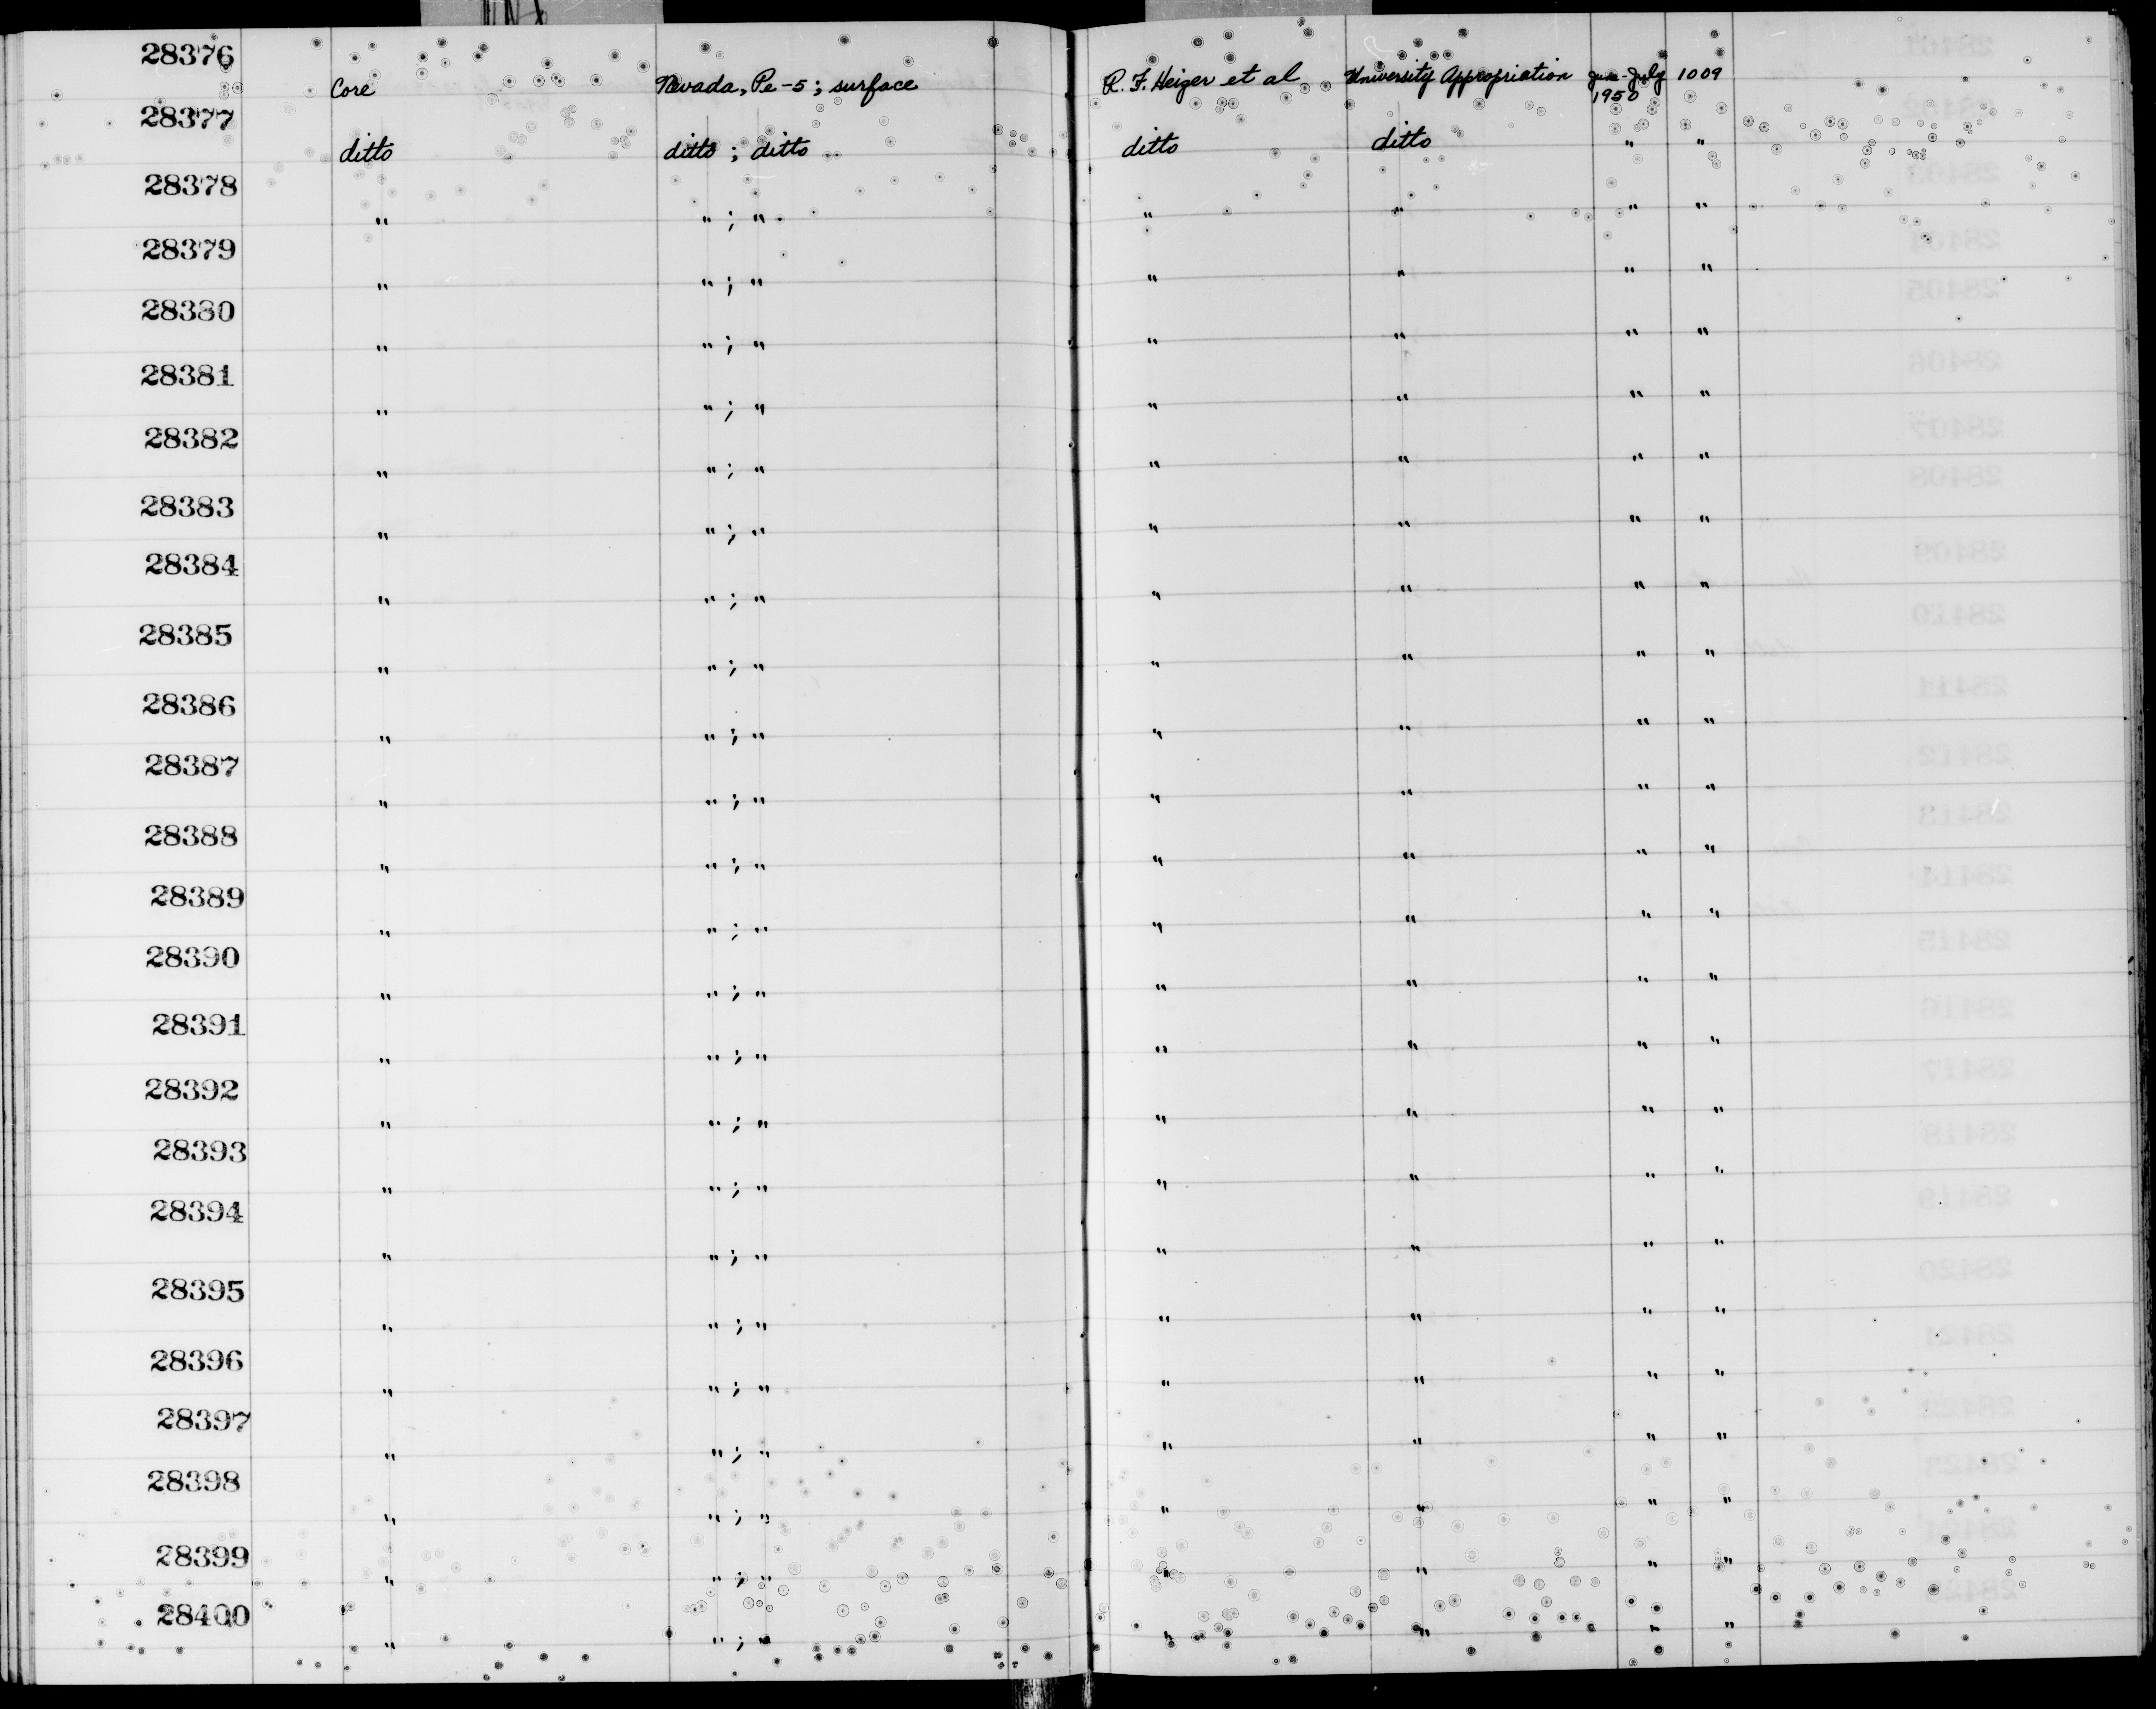 28376 Core Nevada, Pe-5; surface R. F. Heizer et al University Appropriation June-July 1950 1009
28377 ditto ditto ; ditto ditto ditto " "
28378 " " ; " " " " "
28379 " " ; " " " " "
28380 " " ; " " " " "
28381 " " ; " " " " "
28382 " " ; " " " " "
28383 " " ; " " " " "
28384 " " ; " " " " "
28385 " " ; " " " " "
28386 " " ; " " " " "
28387 " " ; " " " " "
28388 " " ; " " " " "
28389 " " ; " " " " "
28390 " " ; " " " " "
28391 " " ; " " " " "
28392 " " ; " " " " "
28393 " " ; " " " " "
28394 " " ; " " " " "
28395 " " ; " " " " "
28396 " " ; " " " " "
28397 " " ; " " " " "
28398 " " ; " " " " "
28399 " " ; " " " " "
28400 " " ; " " " " "